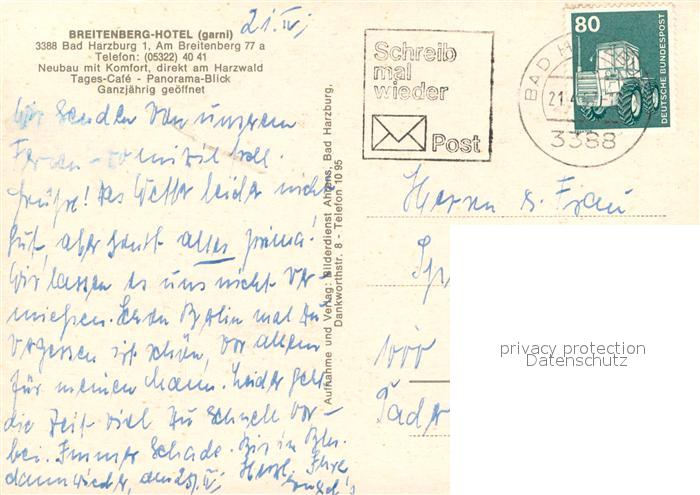 BREITENBERG-HOTEL (garni)
3388 Bad Harzburg 1, Am Breitenberg 77 a
Telefon: (05322) 40 41
Neubau mit Komfort, direkt am Harzwald
Tages-Café - Panorama-Blick
Ganzjährig geöffnet
21. IV;
Wir senden von unserem
Ferien-
Grüße! Das Wetter leider nicht
gut, aber sonst alles prima!
Wir lassen es uns nicht ver-
miesen. Berlin mal zu
vergessen ist schön, vor allem
für meinen Mann. Leider geht
die Zeit viel zu schnell vor-
bei. Immer Schade. Bis in Bln.
dann wieder, am 25. IV; Herzl. Ihre
Aufnahme und Verlag: Bilderdienst Ahrens, Bad Harzburg,
Dankworthstr. 8 - Telefon 10 95
Schreib
mal
wieder
Post
BAD H
21.4.
3388
80
DEUTSCHE BUNDESPOST
Herrn u. Frau
Sp
1000
privacy protection
Datenschutz